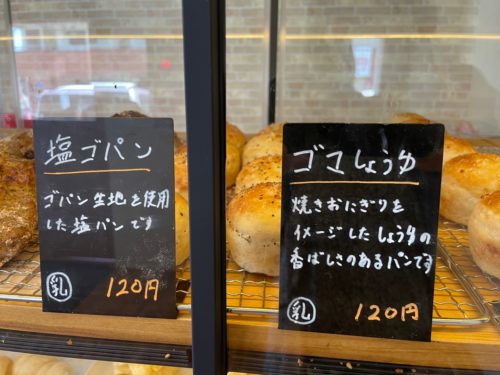 塩ゴパン
ゴパン生地を使用
した塩パンです
乳
120円
ゴマしょうゆ
焼きおにぎりを
イメージしたしょうゆの
香ばしさのあるパンです
乳
120円